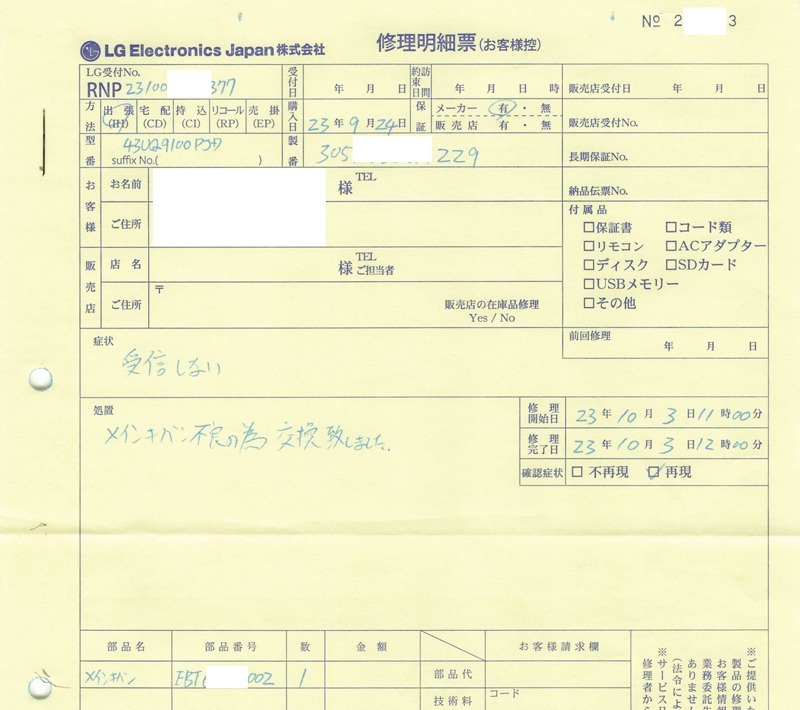 № 2 3
LG Electronics Japan 株式会社 修理明細票(お客様控)
LG受付No.
RNP 23100 377
受付日 年 月 日 訪問約束日時間 年 月 日 時 販売店受付日 年 月 日
方法 出張(IH) 宅配(CD) 持込(CI) リコール(RP) 売掛(EP) 購入日 23年9月24日 保証 メーカー 有・無
販売店 有・無 販売店受付No.
型番 43UQ9100PJD
suffix No.( )
製番 305 229 長期保証No.
お客様 お名前 様 TEL 納品伝票No.
ご住所
付属品
□保証書 □コード類
□リモコン □ACアダプター
□ディスク □SDカード
□USBメモリー
□その他
販売店 店名 様 TEL ご担当者
ご住所 〒 販売店の在庫品修理
Yes / No
前回修理 年 月 日
症状
受信しない
処置
メインキバン不良の為 交換致しました。
修理開始日 23年10月3日11時00分
修理完了日 23年10月3日12時00分
確認症状 □ 不再現 ☑ 再現
部品名 部品番号 数 金額 お客様請求欄
メインキバン EBT 002 1 部品代
技術料 コード
※ご提供いた
製品の修理
お客様情報
業務委託先
ありません
(法令によ
※サービス
修理者から